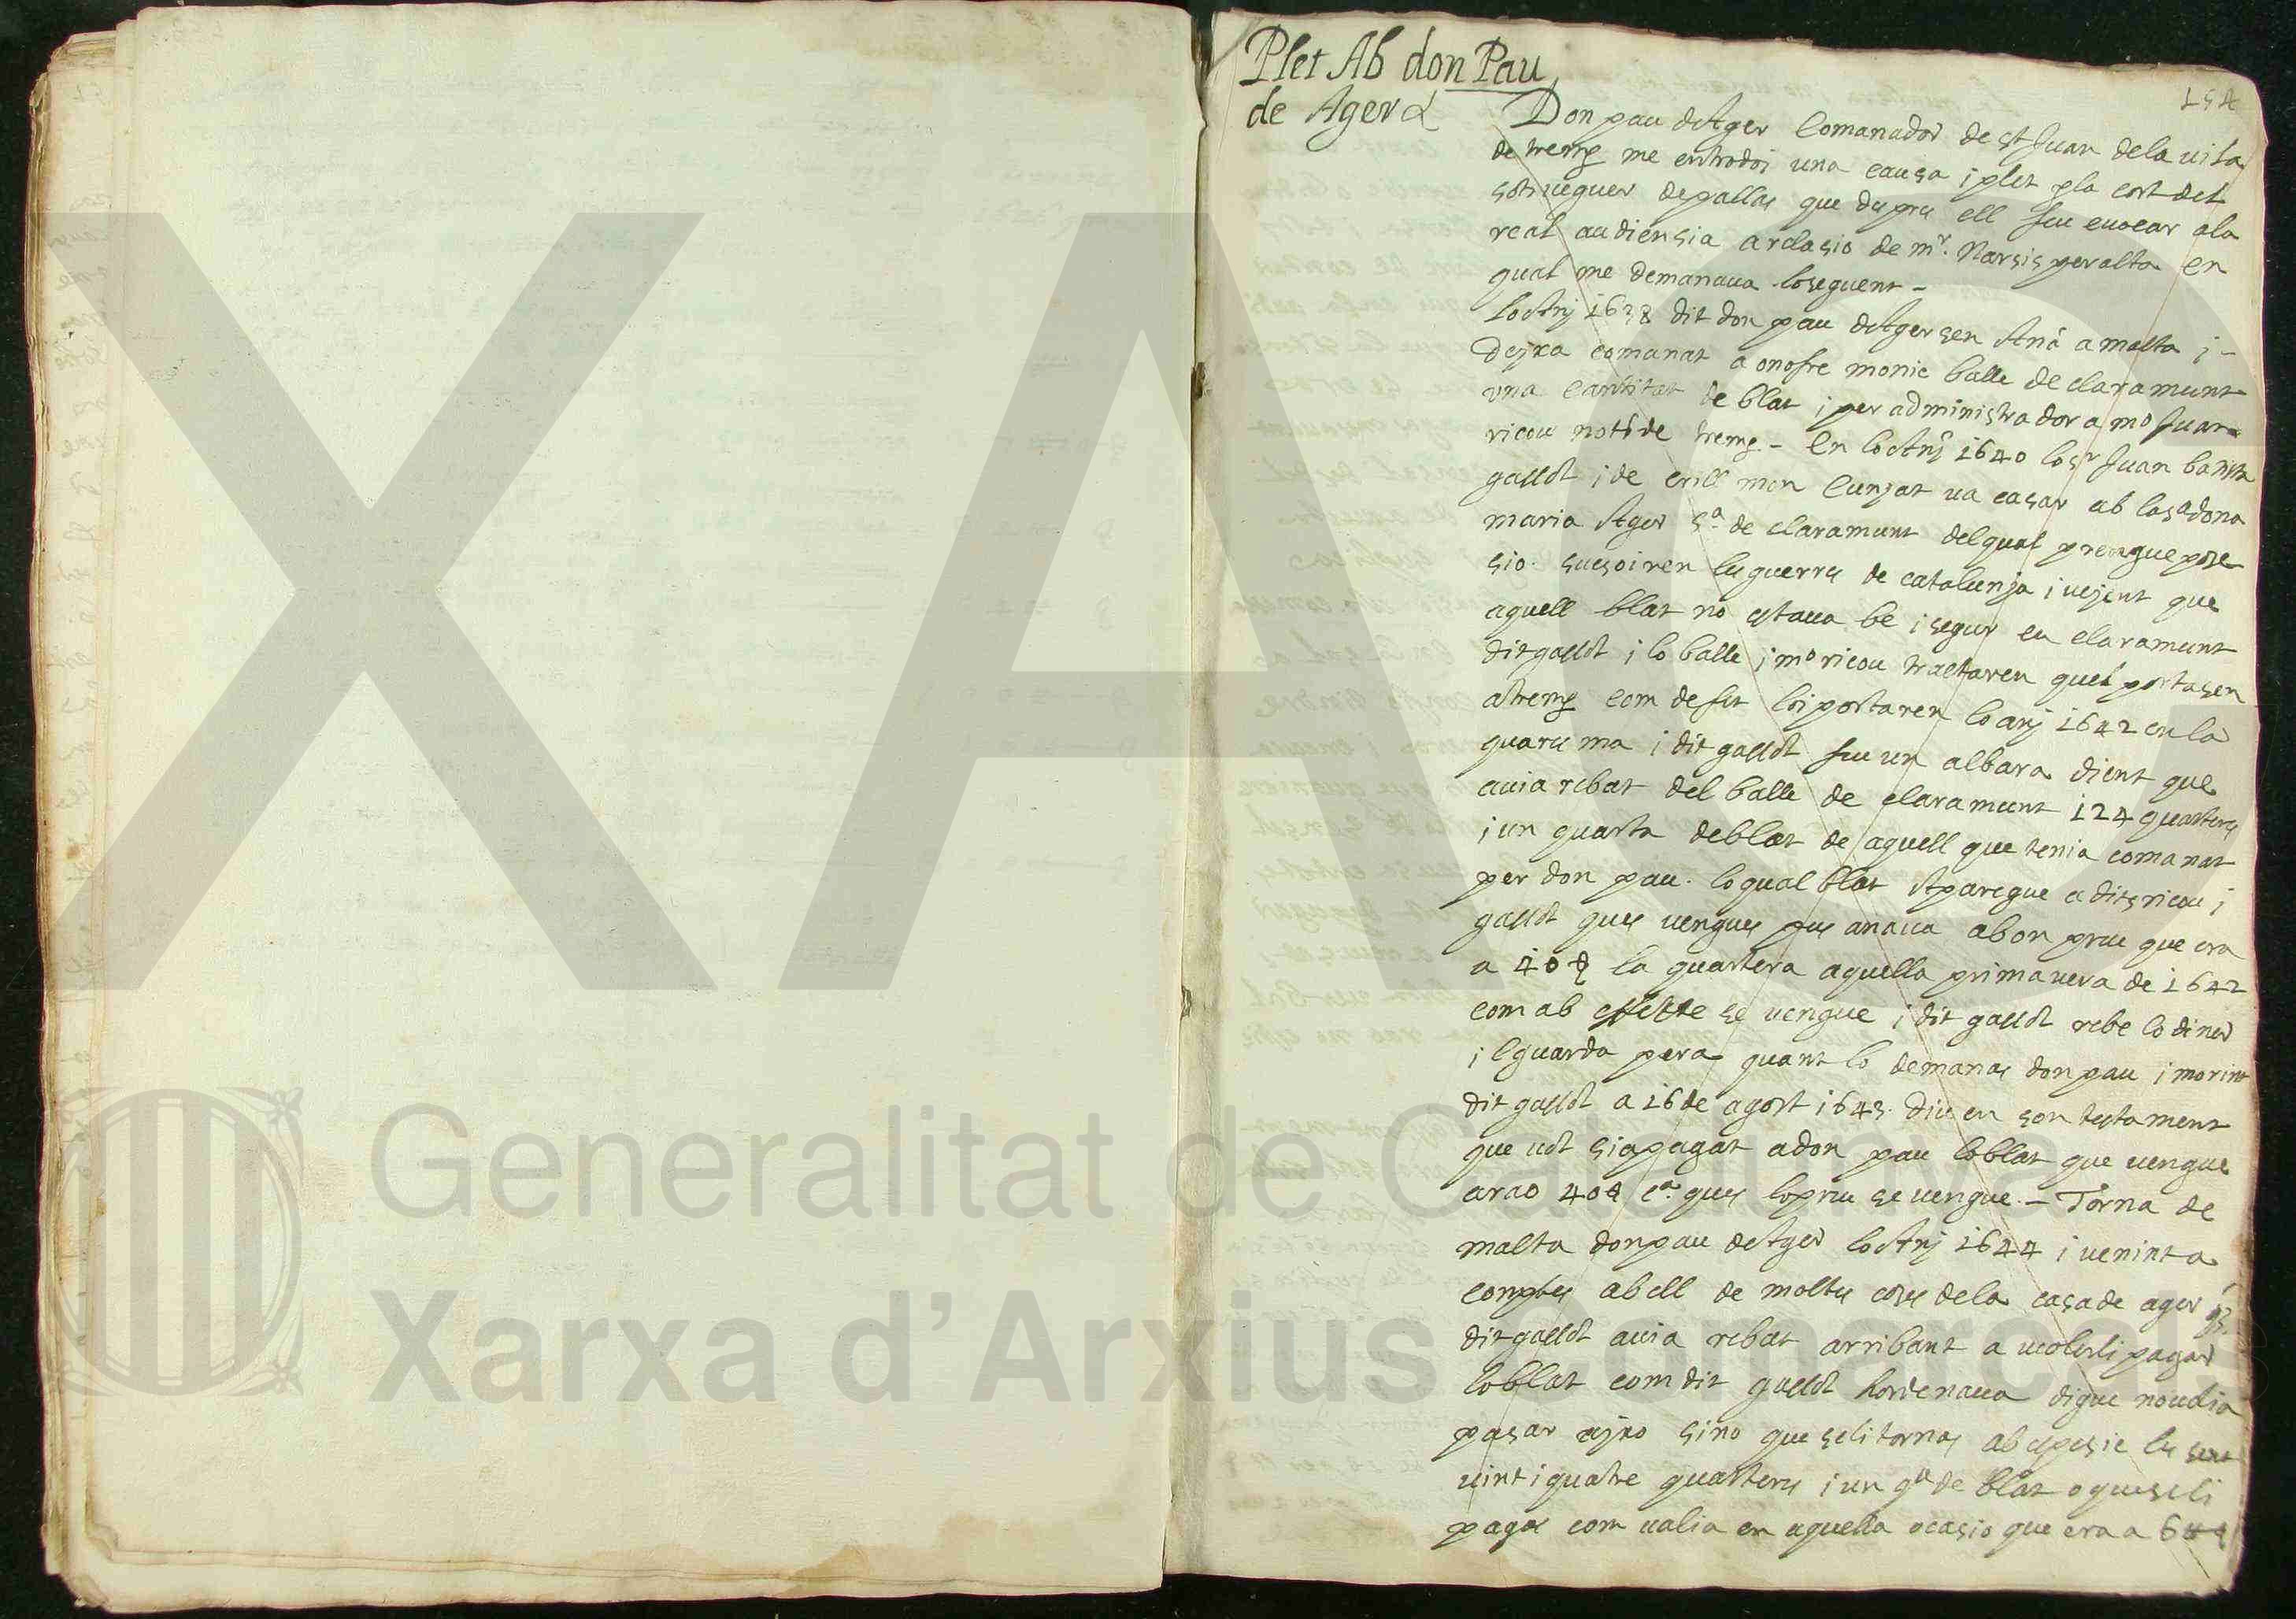 Plet Ab don Pau
de Ager
154
Don pau de Ager Comanador de st Juan dela uila
de tremp me entrodoi una causa i plet pla cort del
sotsueguer de pallas que dspres ell feu euocar ala
real audiensia a relasio de mr. Narsis peralta en
qual me demanaua loseguent –
lo Anj 1638 dit don pau de Ager sen Aná a malta i –
dejxa comanat a onofre monic balle de claramunt
vna cantitat de blat i per administrador a mo Juan
ricou notí de tremp – En lo Anj 1640 lo sr Juan batista
gassol i de erill mon cunjat ua casar ab la sa dona
maria Ager sa de claramunt delqual prengue pose
sio. susoiren les guerres de catalunja i uejent que
aquell blat no estaua be i segur en claramunt
dit gassol i lo balle i mo ricou tractaren quel portasen
a tremp com de fet loi portaren lo anj 1642 en la
quaresma i dit gassol feu un albara dient que
auia rebut del balle de claramunt 124 quarteres
i un quarta de blat de aquell que tenia comanat
per don pau. lo qual blat Aparegue a dits ricou i
gassol ques uengues pus anaua a bon preu que era
a 40 § la quartera aquella primauera de 1642
com ab efecte se uengue i dit gassol rebe lo diner
i lguarda pera quant lo demanas don pau i morint
dit gassol a 16 de agost 1643. diu en son testament
que uol sia pagat a don pau lo blat que uengue
a rao 40 § ca. ques lo preu se uengue. – Torna de
malta don pau de Ager lo Anj 1644 i uenint a
comptes ab ell de moltes coses dela casa de ager
dit gassol auia rebut arribant a uolerli pagar
lo blat com dit gassol hordenaua digue no uolia
pasar ajxo sino que seli tornas ab espesie les sent
uint i quatre quarteres i un qa de blat o que seli
pagas com ualia en aquella ocasio que era a